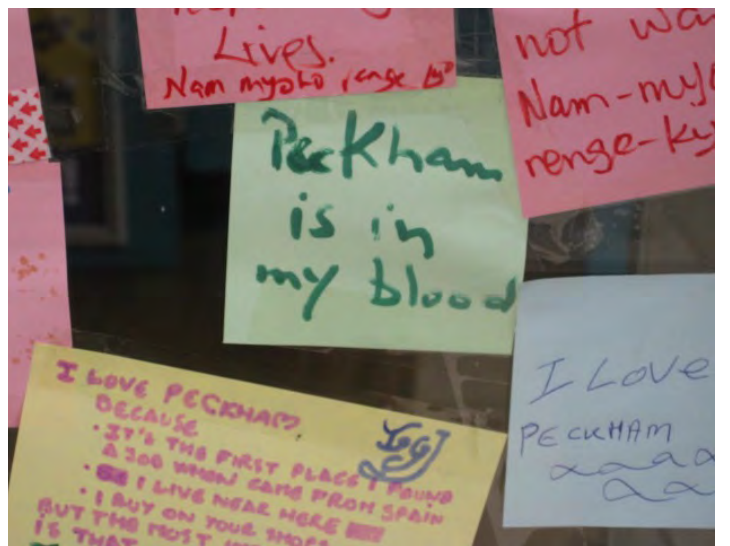 Lives.
Nam myoho renge
not wa
Nam-myo
renge-ky
Peckham
is in
my blood
I LOVE
PECKHAM
I LOVE PECKHAM
BECAUSE
• IT'S THE FIRST PLACE I FOUND
A JOB WHEN CAME FROM SPAIN
• I LIVE NEAR HERE
• I BUY ON YOUR SHOPS
BUT THE MOST
IS THAT